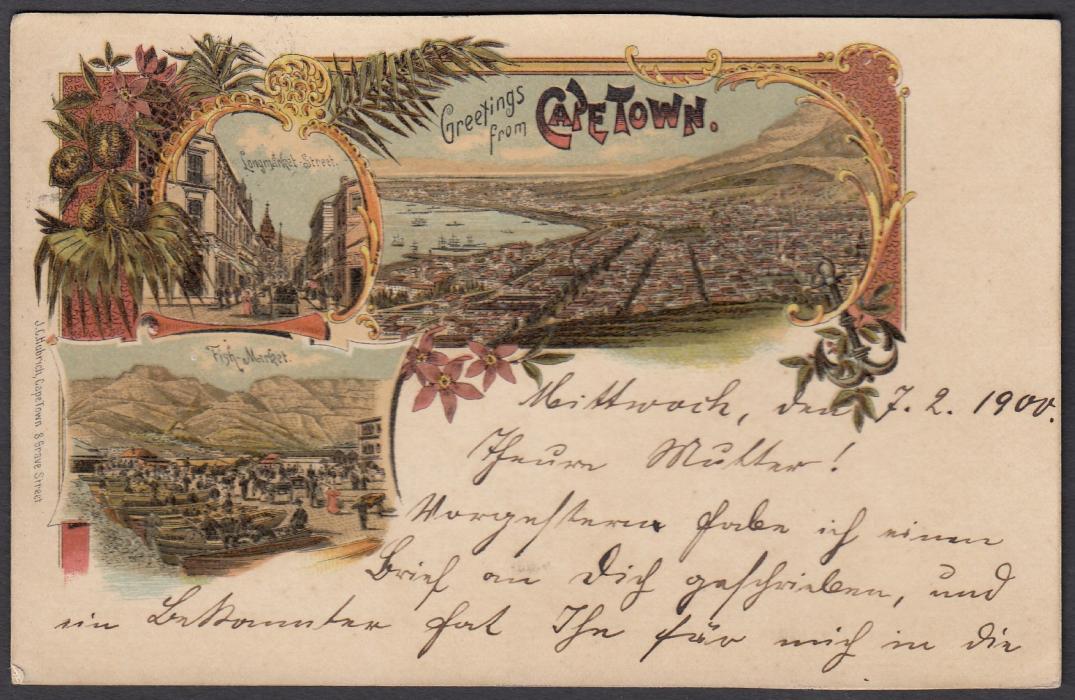 Greetings
from
CAPE TOWN.
Longmarket-Street.
Fish-Market.
J.C. Hubrich, Cape Town 8 Grave Street
Mittwoch, den 7. 2. 1900.
Theure Mutter!
Vorgestern habe ich einen
Brief an Dich geschrieben, und
ein Bekannter hat Ihn für mich in die